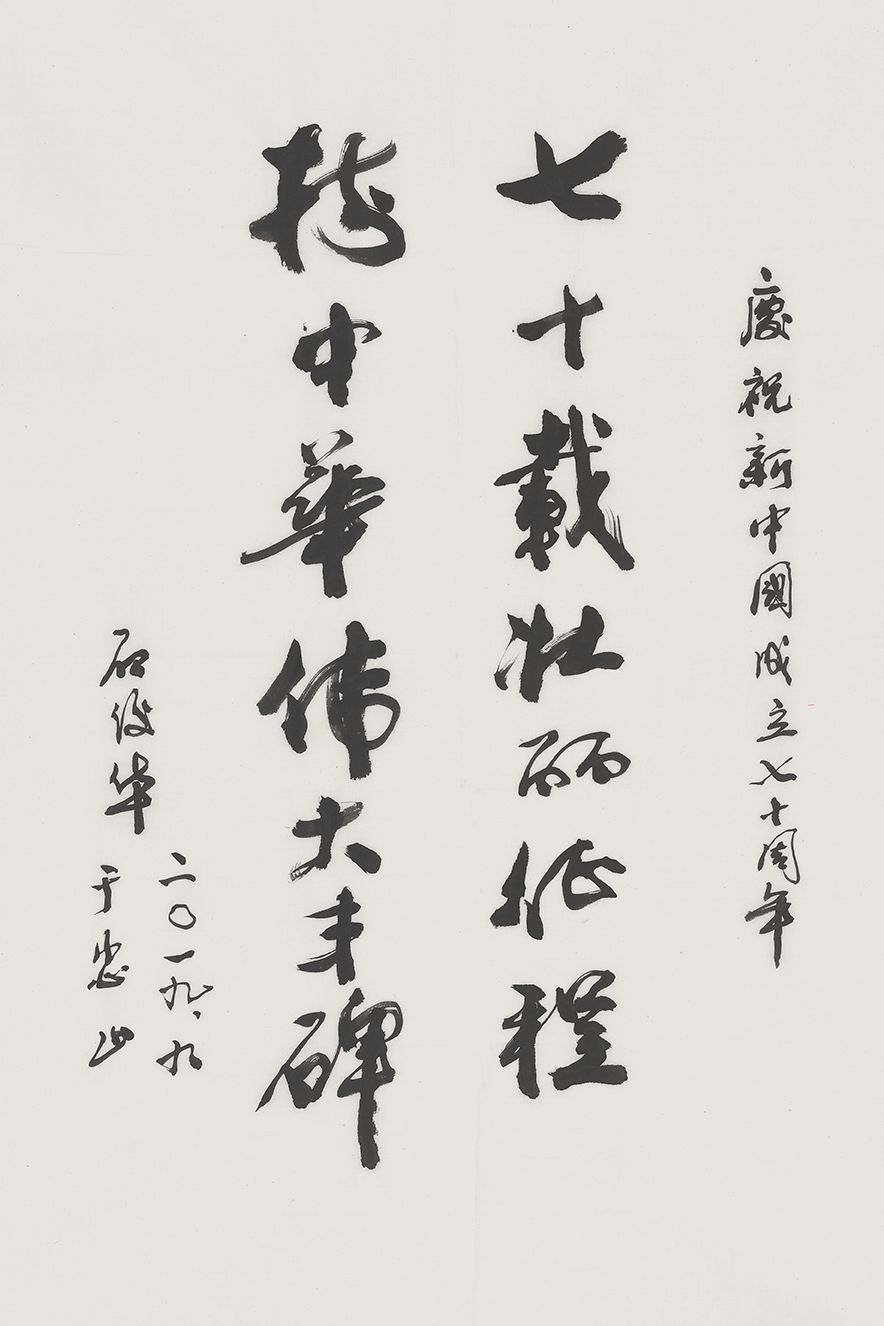 慶祝新中國成立七十周年
七十載壯丽征程
樹中華伟大丰碑
二〇一九、九
石俊华 于